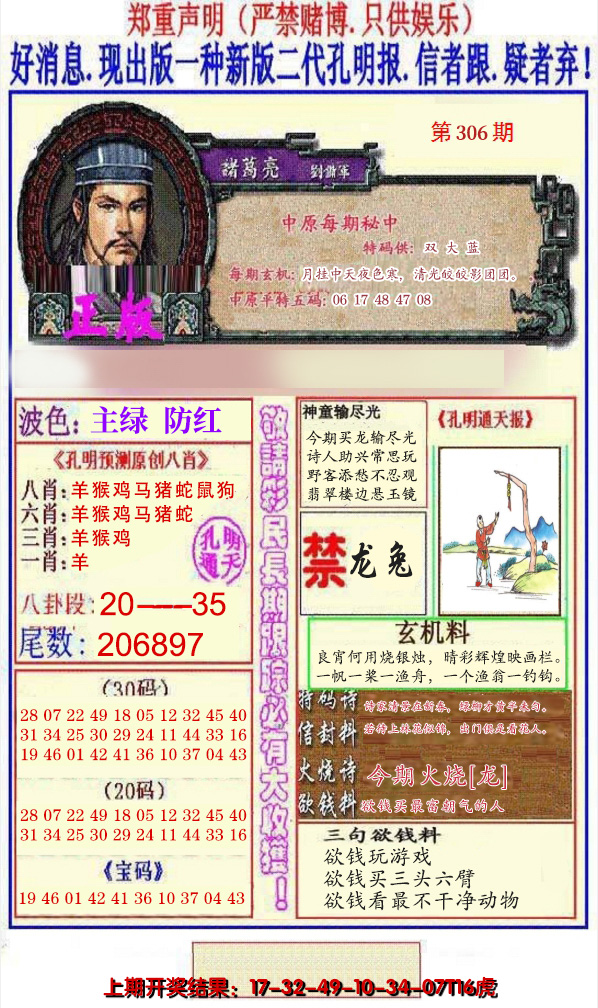 郑重声明（严禁赌博.只供娱乐）
好消息.现出版一种新版二代孔明报.信者跟.疑者弃！
第306期
諸葛亮
劉備軍
中原每期秘中
特码供：双 大 蓝
每期玄机：月挂中天夜色寒，清光皎皎影团团。
中原平特五码：06 17 48 47 08
正版
波色：主绿 防红
《孔明预测原创八肖》
八肖：羊猴鸡马猪蛇鼠狗
六肖：羊猴鸡马猪蛇
三肖：羊猴鸡
一肖：羊
孔明
通天
八卦段：20——35
尾数：206897
（30码）
28 07 22 49 18 05 12 32 45 40
31 34 25 30 29 24 11 44 33 16
19 46 01 42 41 36 10 37 04 43
（20码）
28 07 22 49 18 05 12 32 45 40
31 34 25 30 29 24 11 44 33 16
《宝码》
19 46 01 42 41 36 10 37 04 43
敬請彩民長期跟踪必有大收獲！
神童输尽光
今期买龙输尽光
诗人助兴常思玩
野客添愁不忍观
翡翠楼边悬玉镜
《孔明通天报》
禁龙兔
玄机料
良宵何用烧银烛，晴彩辉煌映画栏。
一帆一桨一渔舟，一个渔翁一钓钩。
特码诗 诗家清景在新春，绿柳才黄半未匀。
信封料 若待上林花似锦，出门俱是看花人。
火烧诗 今期火烧[龙]
欲钱料 欲钱买最富朝气的人
三句欲钱料
欲钱玩游戏
欲钱买三头六臂
欲钱看最不干净动物
上期开奖结果：17-32-49-10-34-07T16虎